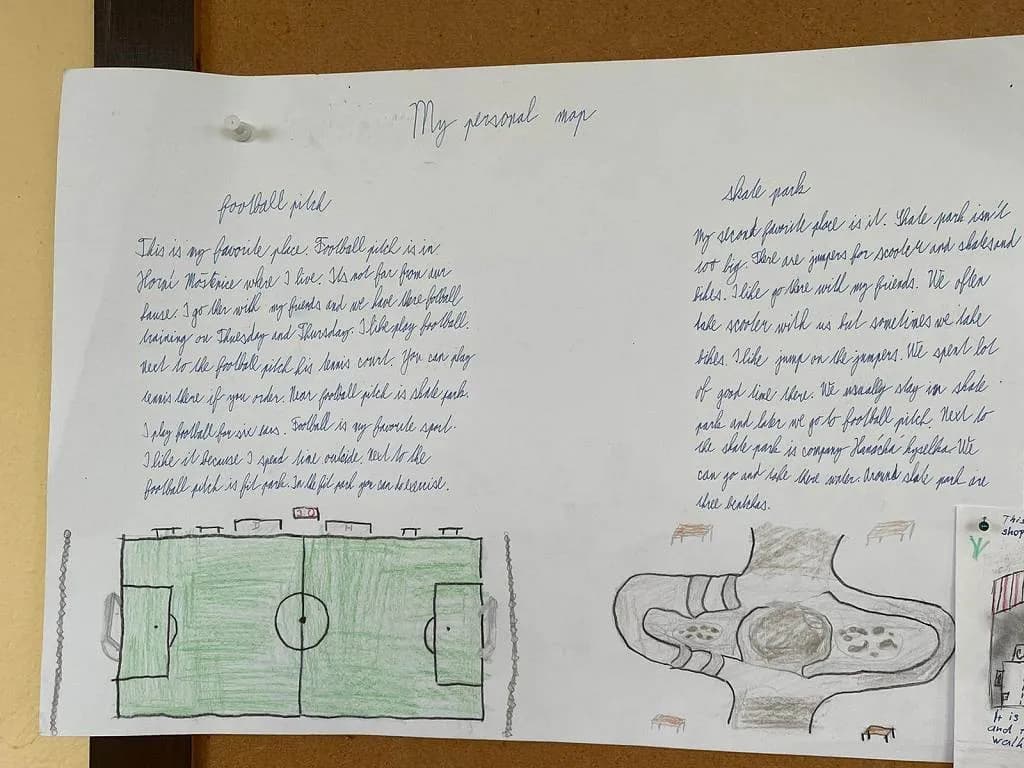 My personal map
football pitch
This is my favorite place. Football pitch is in
Horní Moštěnice where I live. Its not far from our
hause. I go ther with my friends and we have there fotball
training on Thuesday and Thursday. I like play football.
Next to the football pitch his tennis court. You can play
tennis there if you order. Near football pitch is skate park.
I play football for six ears. Football is my favorite sport.
I like it because I spend time outside. Next to the
football pitch is fit park. In the fit park you can to exercise.
skate park
My second favorite place is it. Skate park isn't
too big. There are jumpers for scooter and skates and
bikes. I like go there with my friends. We often
take scooter with us but sometimes we take
bikes. I like jump on the jumpers. We spent lot
of good time there. We usually stay in skate
park and later we go to football pitch. Next to
the skate park is company Hanácká kyselka. We
can go and take there water. Around skate park are
three bentches.
D
H
This
shop
It is
and
walk